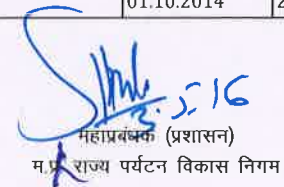 01.10.2014 2
3.5.16
महाप्रबंधक (प्रशासन)
म.प्र. राज्य पर्यटन विकास निगम